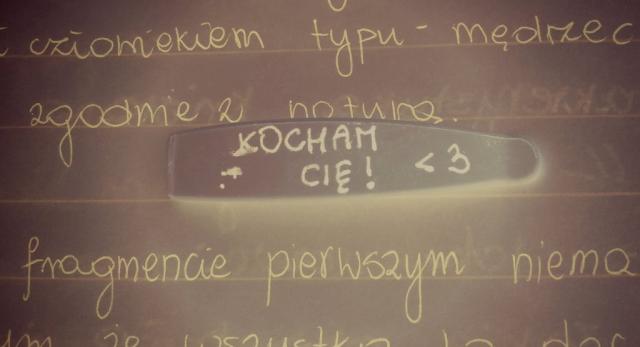 człowiekiem typu - mędrzec
zgodnie z naturą.
KOCHAM
CIĘ! <3
fragmencie pierwszym niema
że wszystko to